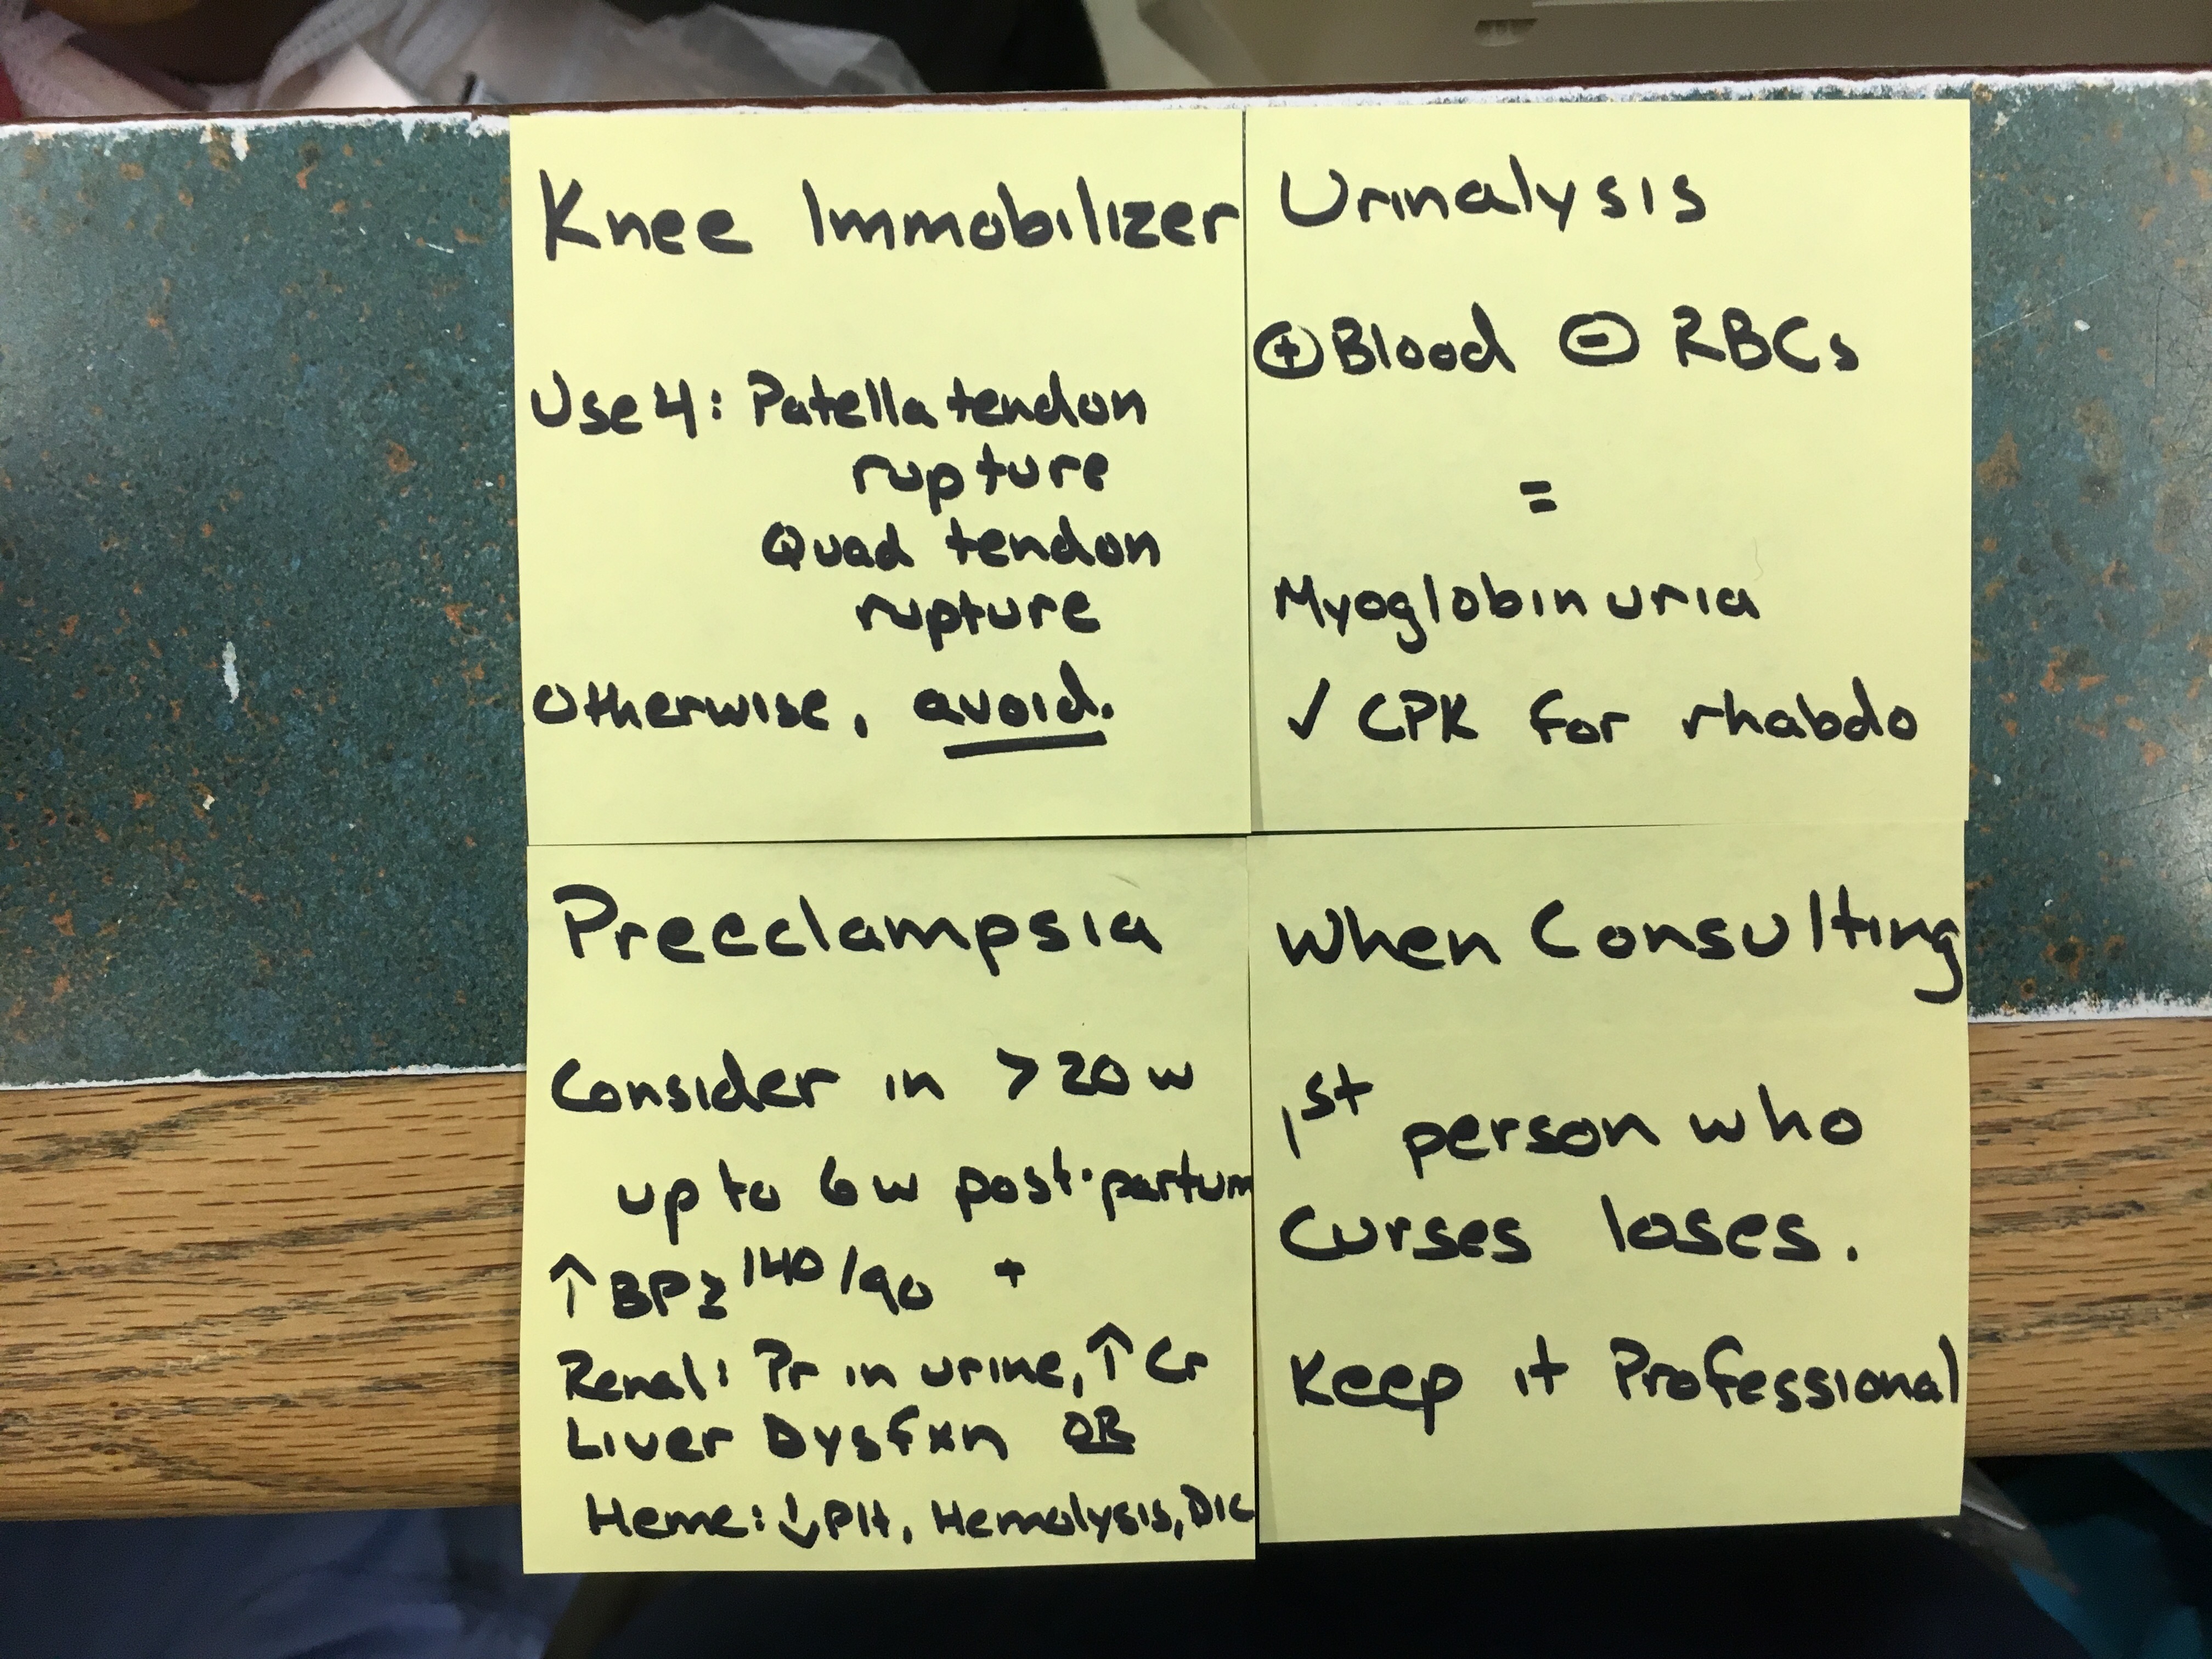 Knee Immobilizer
Use 4: Patella tendon
rupture
Quad tendon
rupture
Otherwise, avoid.
Urinalysis
⊕Blood ⊖ RBCs
=
Myoglobinuria
✓ CPK for rhabdo
Preeclampsia
Consider in >20w
up to 6w post-partum
↑BP≥140/90 +
Renal: Pr in urine, ↑Cr
Liver Dysfxn OR
Heme: ↓Plt, Hemolysis, DIC
When Consulting
1st person who
Curses loses.
Keep it Professional